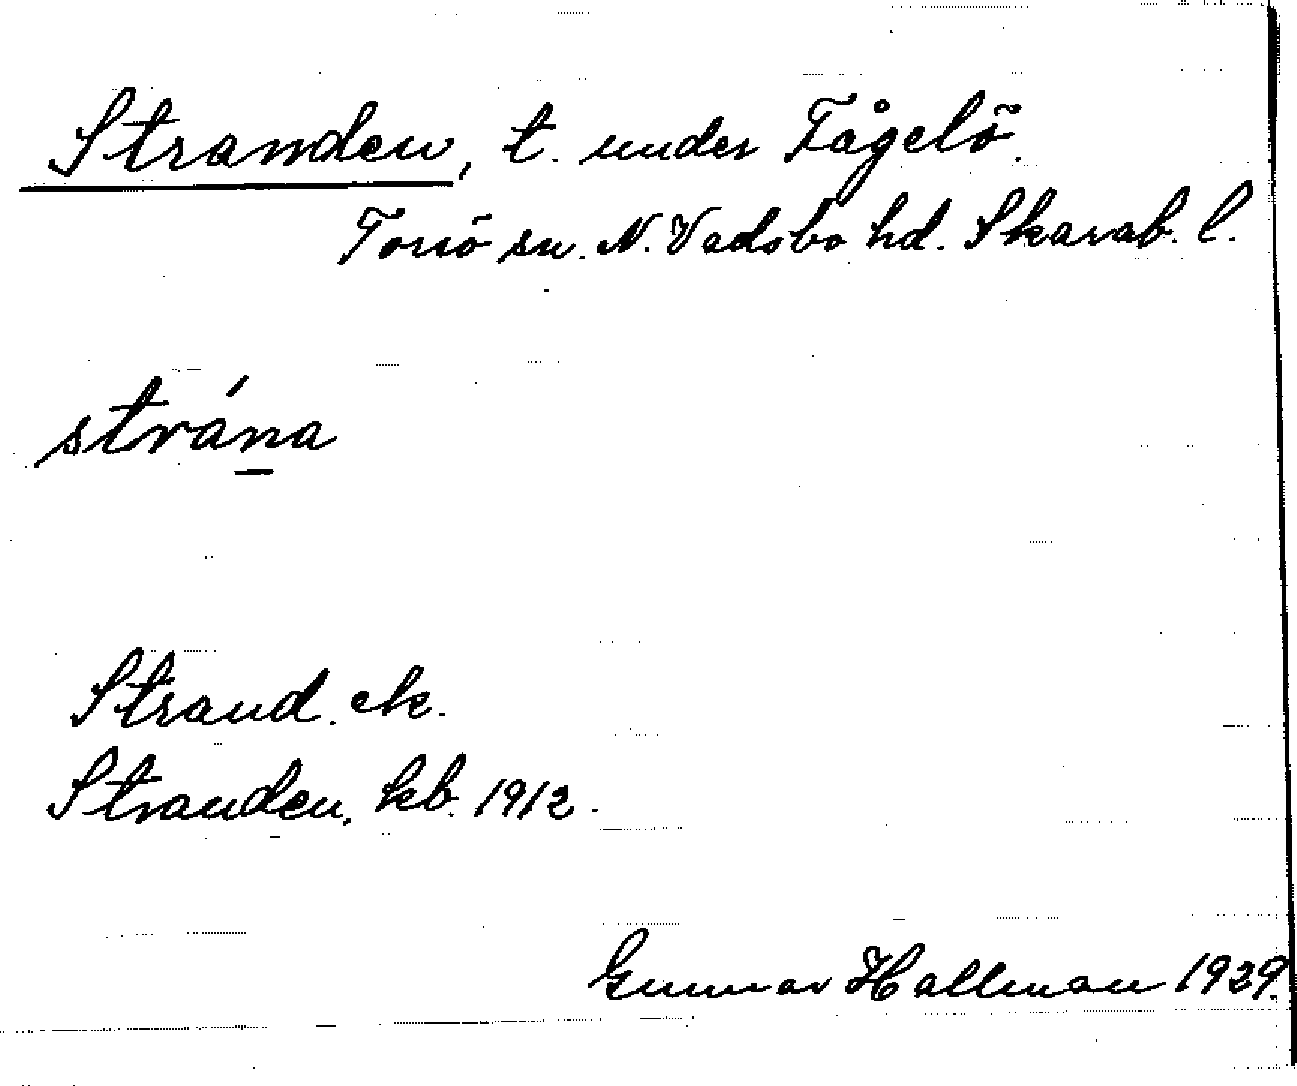 Stranden, t. under Fågelö.
Torsö sn. N. Vadsbo hd. Skarab. l.
strána
Strand. ek.
Stranden, kb. 1912.
Gunnar Hallman 1929.